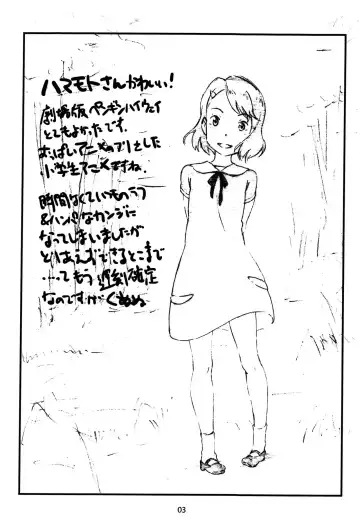 ハマモトさんかわいい!
劇場版ペンギンハイウェイ
とてもよかったです。
おっぱいアニメのフリをした
小学生アニメですね。
時間なくていつものラフ
&ハンパなカンジに
なってしまいましたが
とりあえずできるとこまで
…ってもう遅刻確定
なのですがぐぬぬ
03